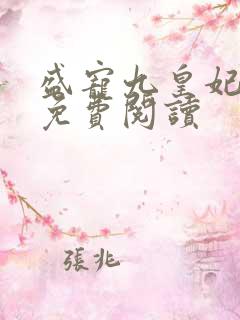 盛寵九皇妃
免費閱讀
張兆